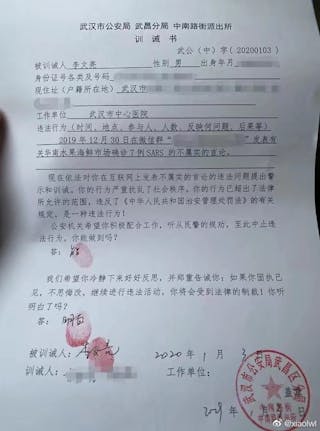 武汉市公安局 武昌分局 中南路街派出所
训诫书
武公(中)字(20200103)
被训诫人 李文亮 性别 男 出身年月
身份证件种类及号码
现住址(户籍所在地) 武汉市
工作单位 武汉市中心医院
违法行为(时间、地点、参与人、人数、反映何问题、后果等)
2019年12月30日在微信群“ ”发表有
关华南水果海鲜市场确诊7例SARS的不属实的言论。
现在依法对你在互联网上发表不属实的言论的违法问题提出警
示和训诫。你的行为严重扰乱了社会秩序。你的行为已超出了法律
所允许的范围，违反了《中华人民共和国治安管理处罚法》的有关
规定，是一种违法行为！
公安机关希望你积极配合工作，听从民警的规劝，至此中止违
法行为。你能做到吗？
答：能
我们希望你冷静下来好好反思，并郑重告诫你：如果你固执己
见，不思悔改，继续进行违法活动，你将会受到法律的制裁！你听
明白了吗？
答：明白
被训诫人： 李文亮 2020年1月3日
训诫人： 工作单位：
武汉市公安局武昌区分局
@xiaolwl